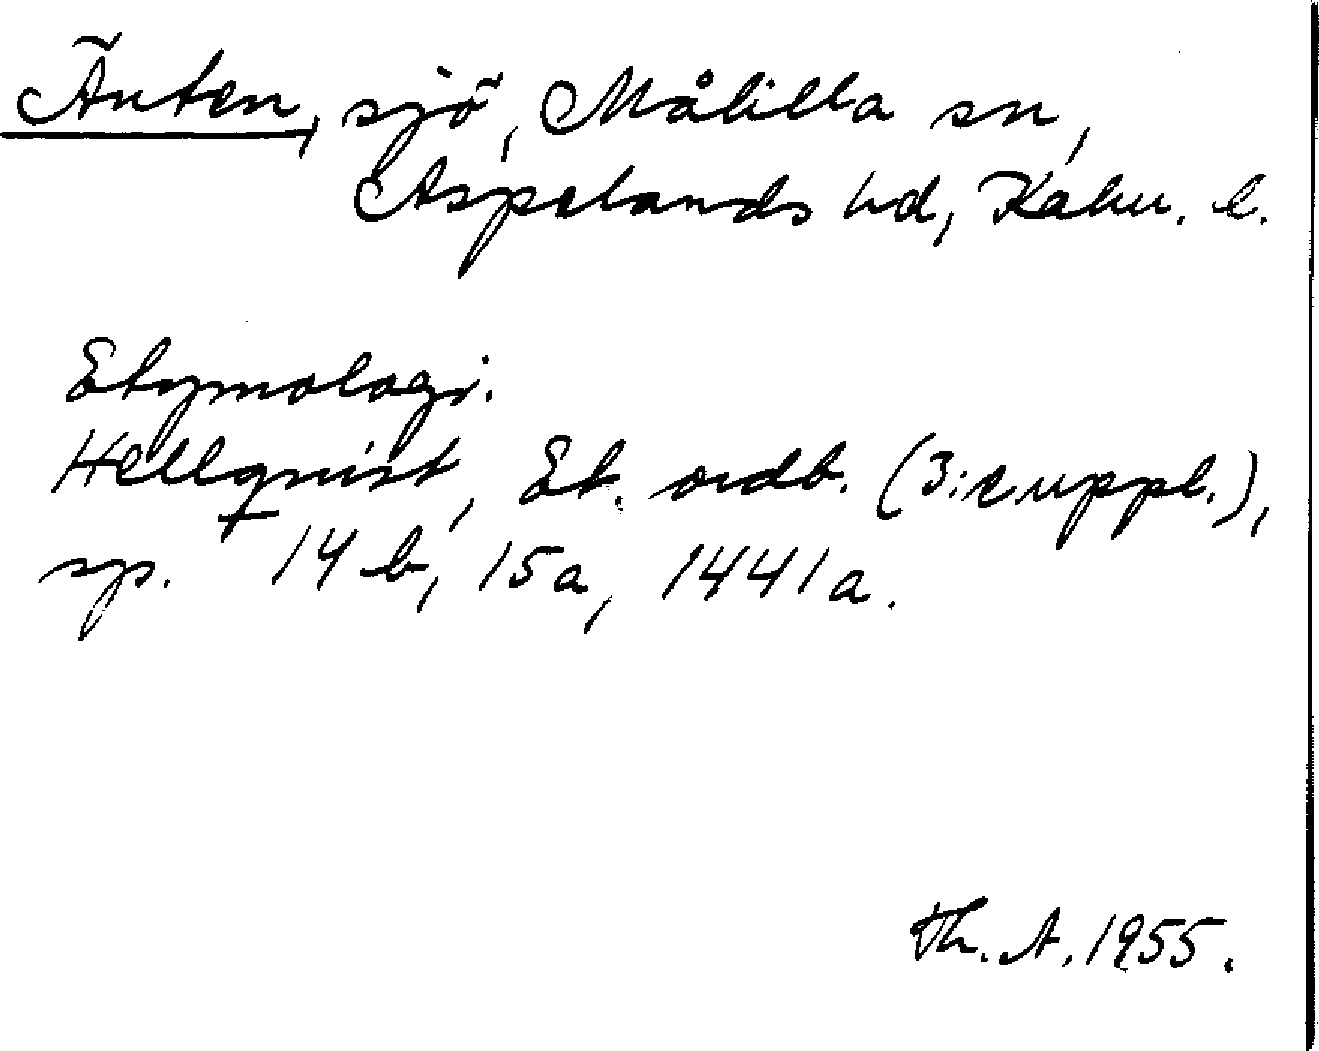 Änten, sjö, Målilla sn,
Aspelands hd, Kalm. l.
Etymologi.
Hellquist, Et. ordb. (3:e uppl.),
sp. 14 b, 15 a, 1441 a.
Th. A. 1955.